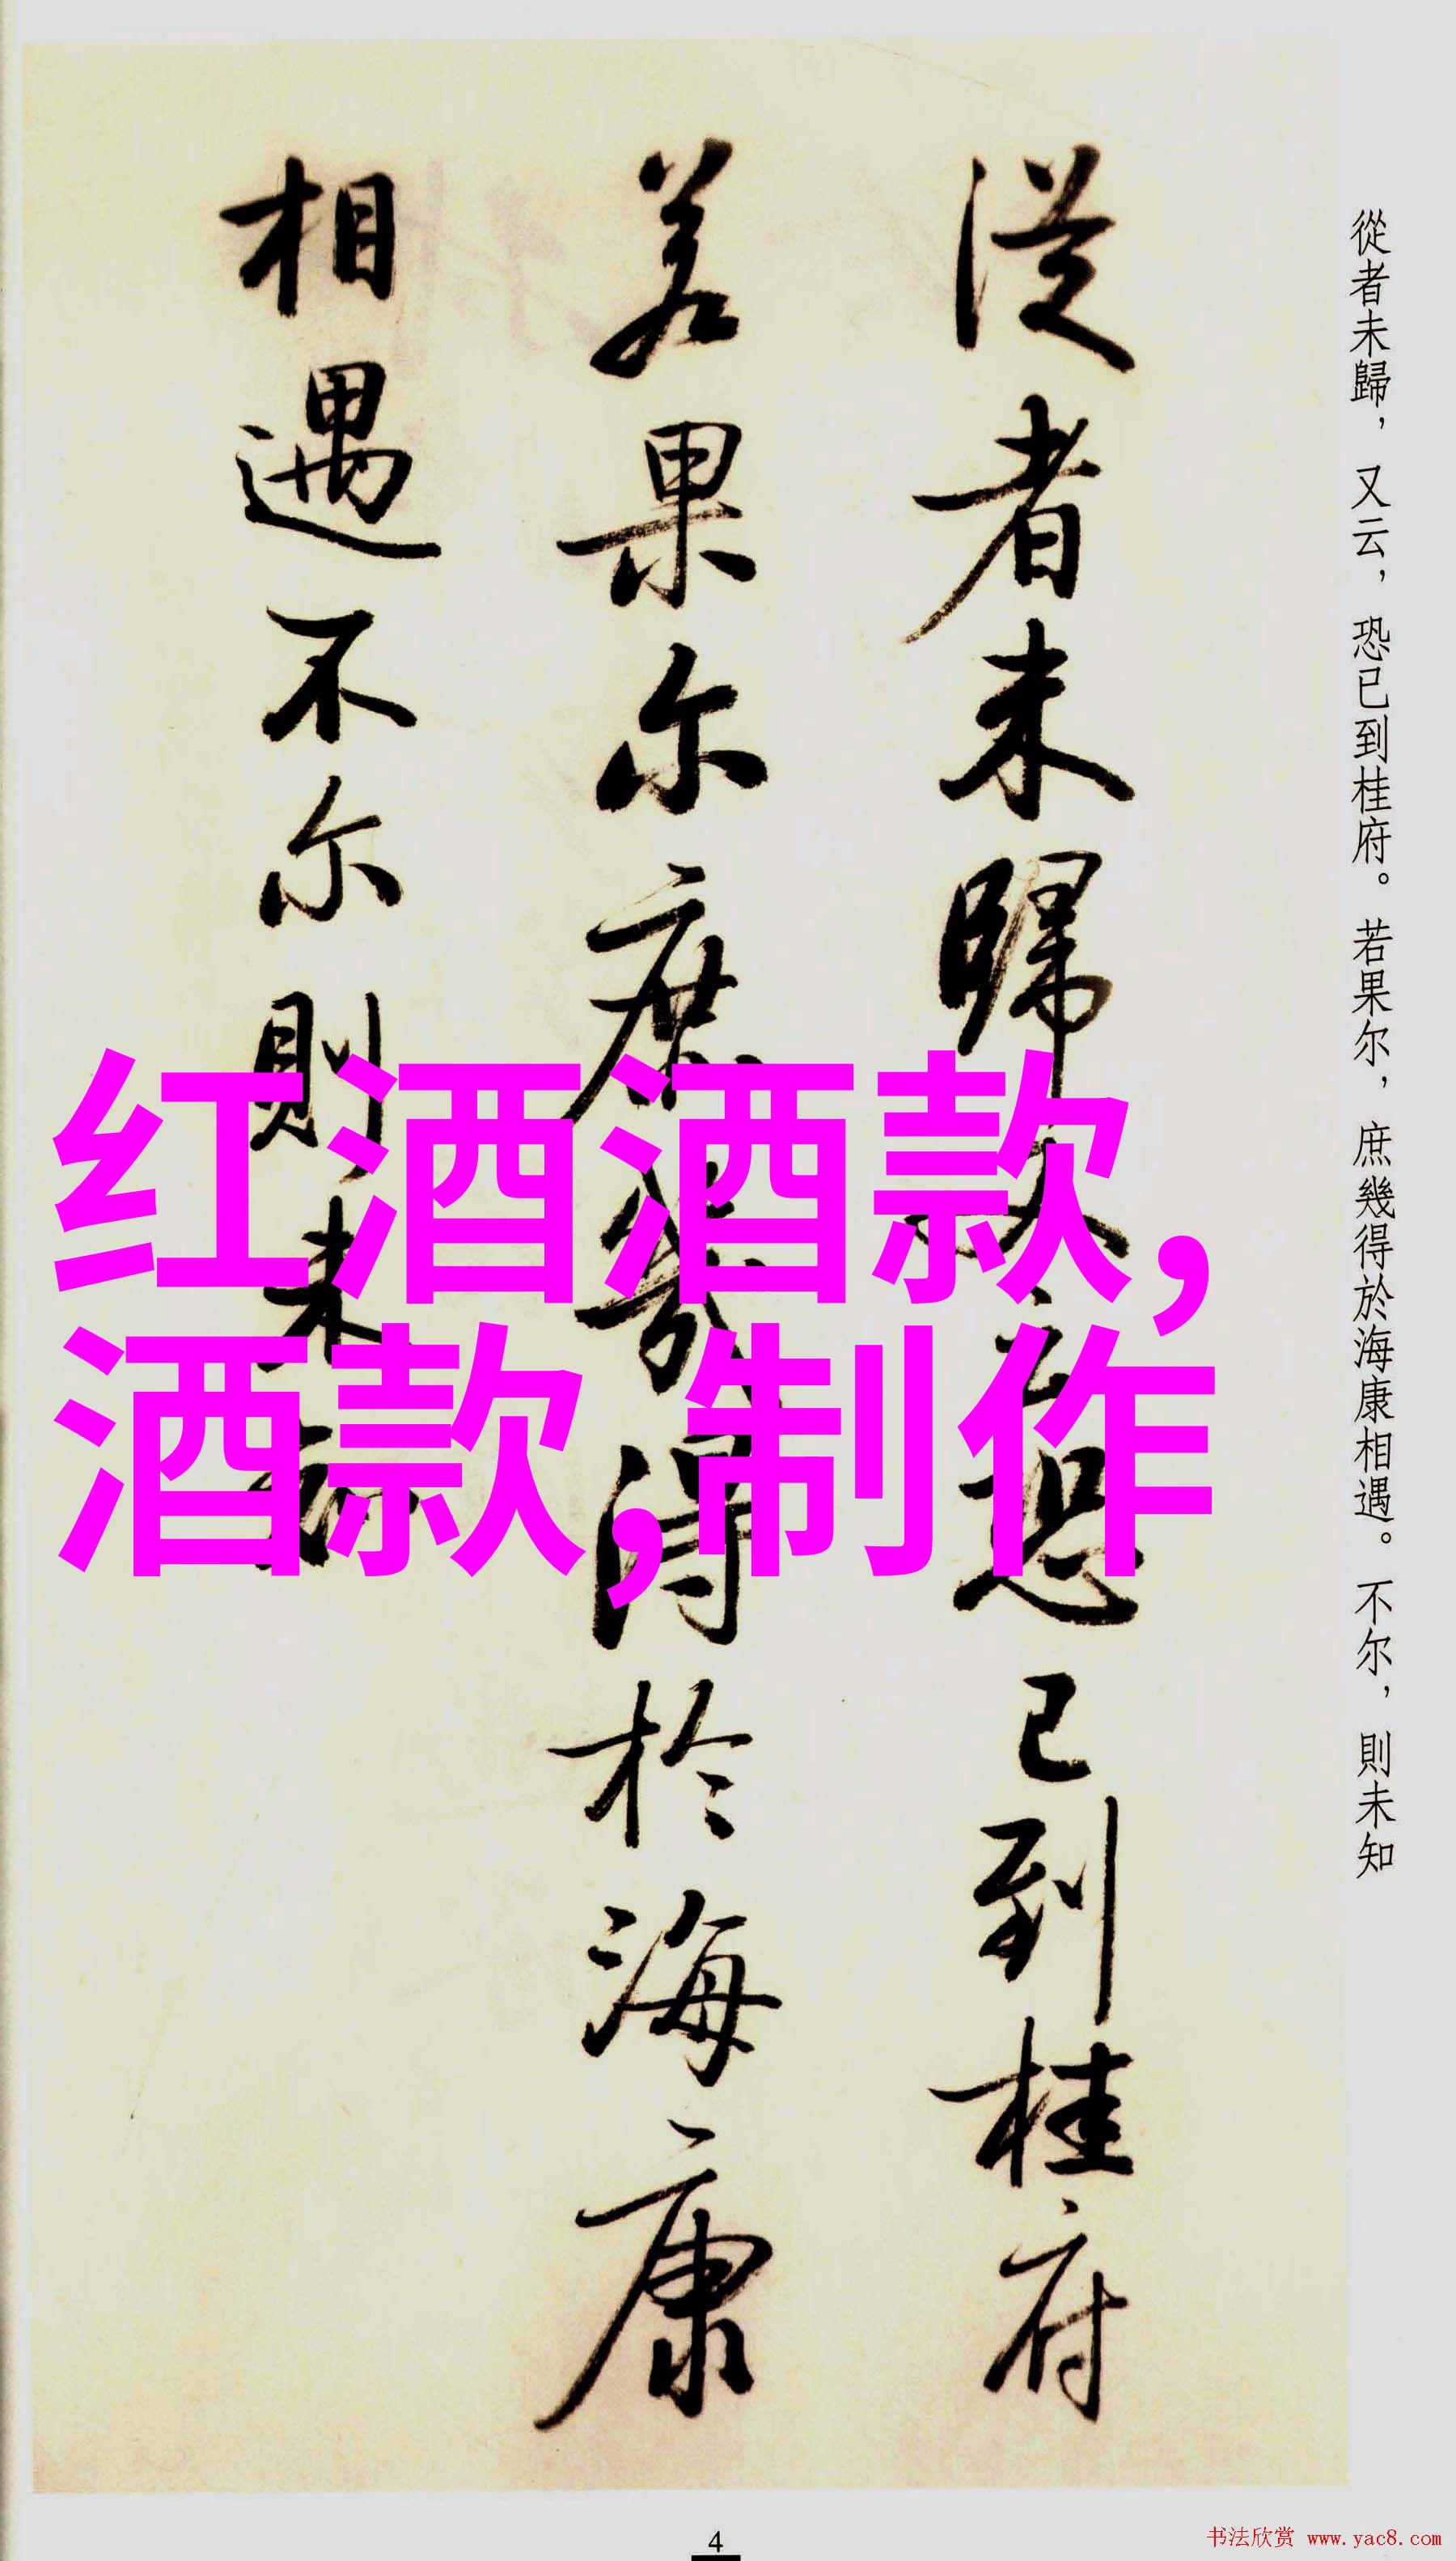 從者未歸，又云，恐已到桂府。若果尔，庶幾得於海康相遇。不尔，則未知
從者未歸又云恐已到桂府
若果尔庶幾得於海康
相遇不尔則未知
红酒酒款,
酒款,制作
4
书法欣赏 www.yac8.com